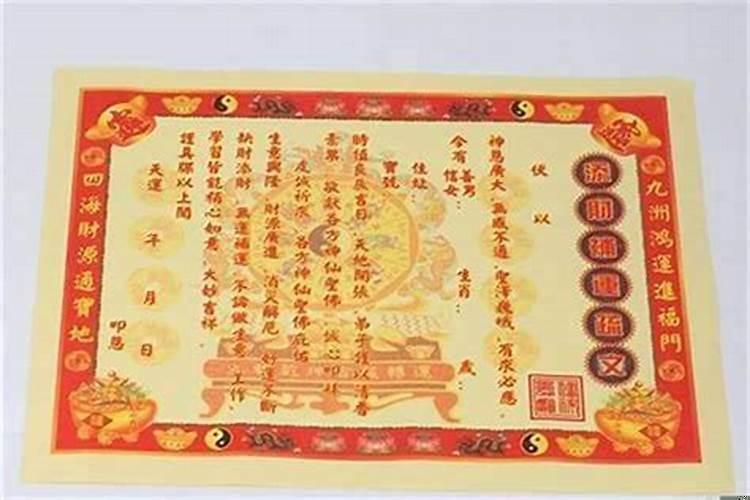 九洲鴻運進福門
添財補運疏文
伏以
神恩廣大 無感不通 聖澤巍峨 有求必應
今有 善男 信女: 生肖: 歲:
住址:
寶號
時值良辰吉日 天地開張 弟子謹以清香
素果 敬獻各方神仙聖佛 誠心叩拜
虔誠祈求 各方神仙聖佛庇佑
生意興隆 財源廣進 消災解厄 好運不斷
缺財添財 無運補運 不論做生意、工作、
學習皆能稱心如意 大妙吉祥.
謹具疏以上聞
天運 年 月 日
叩恩
四海財源通寶地